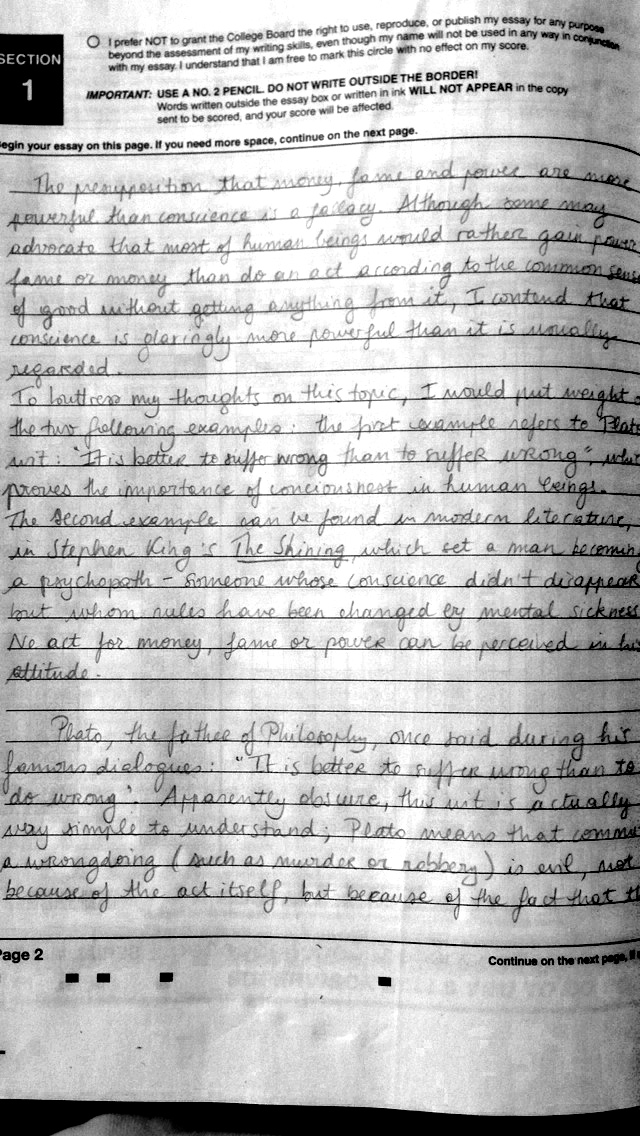 SECTION
1
I prefer NOT to grant the College Board the right to use, reproduce, or publish my essay for any purpose
beyond the assessment of my writing skills, even though my name will not be used in any way in conjunction
with my essay. I understand that I am free to mark this circle with no effect on my score.
IMPORTANT: USE A NO. 2 PENCIL. DO NOT WRITE OUTSIDE THE BORDER!
Words written outside the essay box or written in ink WILL NOT APPEAR in the copy
sent to be scored, and your score will be affected.
egin your essay on this page. If you need more space, continue on the next page.
The presupposition that money, fame and power are more
powerful than conscience is a fallacy. Although some may
advocate that most of human beings would rather gain power
fame or money than do an act according to the common sense
of good without getting anything from it, I contend that
conscience is glaringly more powerful than it is usually
regarded.
To buttress my thoughts on this topic, I would put weight o
the two following examples: the first example refers to Plato
wit: "It is better to suffer wrong than to suffer wrong", whi
proves the importance of conciousness in human beings.
The second example can be found in modern literature,
in Stephen King's The Shining, which set a man becoming
a psychopath - someone whose conscience didn't disappear
but whom rules have been changed by mental sickness
No act for money, fame or power can be perceived in his
attitude.
Plato, the father of Philosophy, once said during his
famous dialogues: "It is better to suffer wrong than to
do wrong". Apparently obscure, this wit is actually
very simple to understand; Plato means that commi
a wrongdoing (such as murder or robbery) is evil, not
because of the act itself, but because of the fact that th
Page 2
Continue on the next page, if